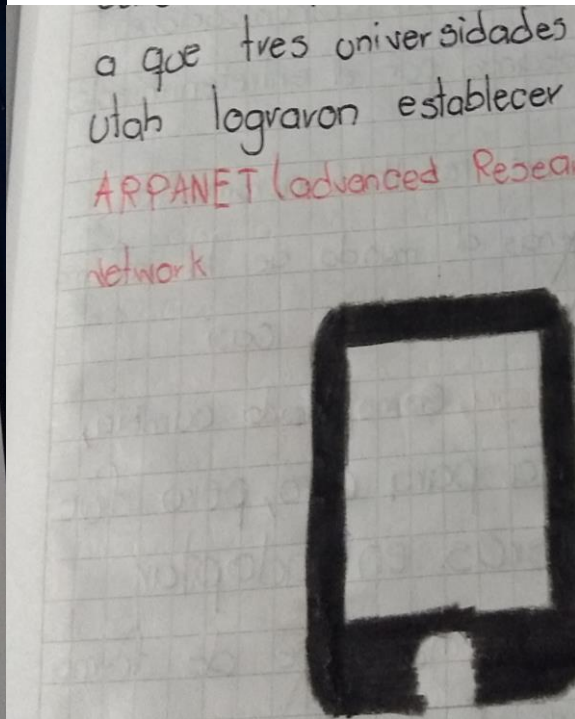 a que tres universidades
Utah lograron establecer
ARPANET (advanced Resea
Network